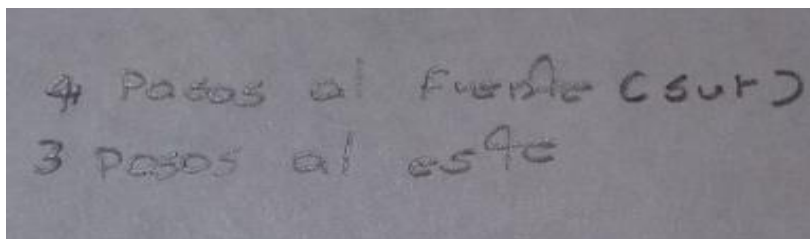 4 Pasos al Fuente (sur)
3 Pasos al este